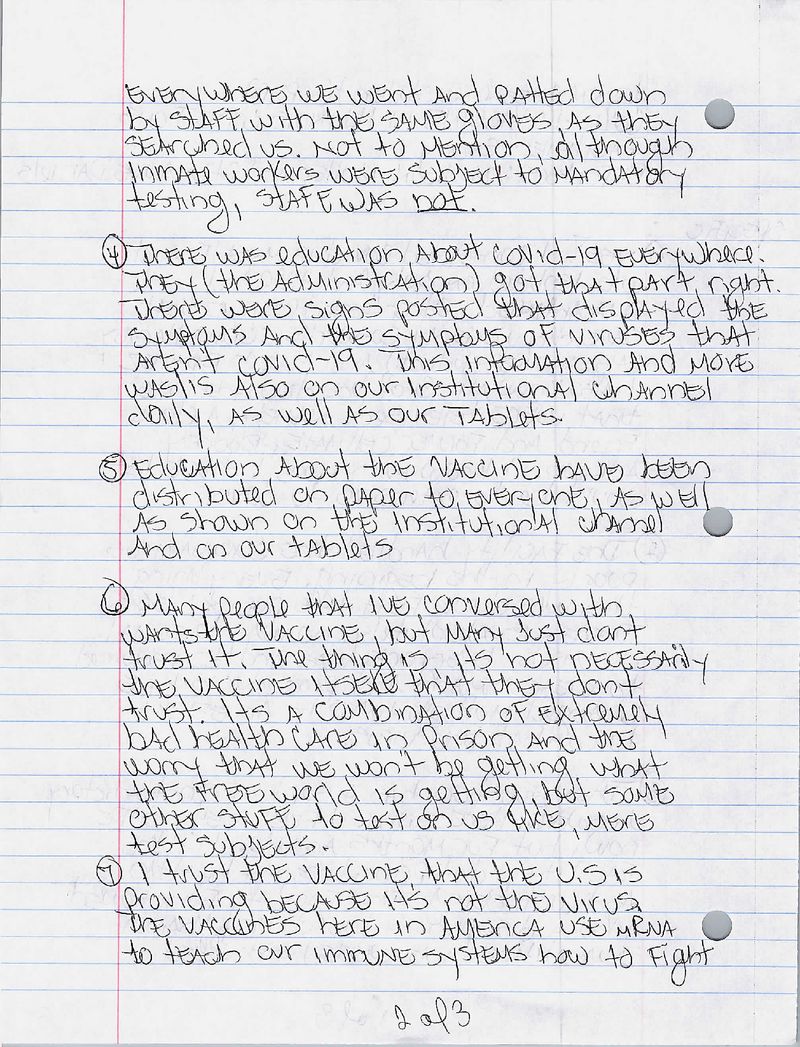 EVERYWHERE WE WENT AND PATTED down
by STAFF with the SAME gloves AS they
SEARched us. NOT to MENTION, although
INMATE workers WERE SUBJECT to MANDATORY
testing, STAFF WAS not.
④ THERE WAS education About COVID-19 EVERYwhere.
THEY (the Administration) got that part right.
THERE WERE signs posted that displayed the
symptoms And the symptoms OF VIRUSES that
AREN'T COVID-19. This information AND MORE
was/is Also on our Institutional Channel
daily, AS well AS our TABLETS.
⑤ EDUCATION About the VACCINE have been
distributed on PAPER to EVERYONE, AS WELL
AS shown on the INSTITUTIONAL channel
And on our tAblets
⑥ MANY people that I'VE conversed with
WANTS the VACCINE, but MANY Just don't
trust it. The thing is its not NECESSARily
the VACCINE ITSELF that they don't
trust. Its A COMBINATION OF EXTREMELY
BAD HEALTH CARE in Prison AND the
worry that we won't be getting what
the FREE world is getting, but SOME
other STUFF to test on us LIKE, MERE
test subjects.
⑦ I trust the VACCINE that the U.S is
providing BECAUSE its not the VIRUS.
The VACCINES here in AMERICA USE mRNA
to TEACH our IMMUNE SYSTEMS how to Fight
2 of 3